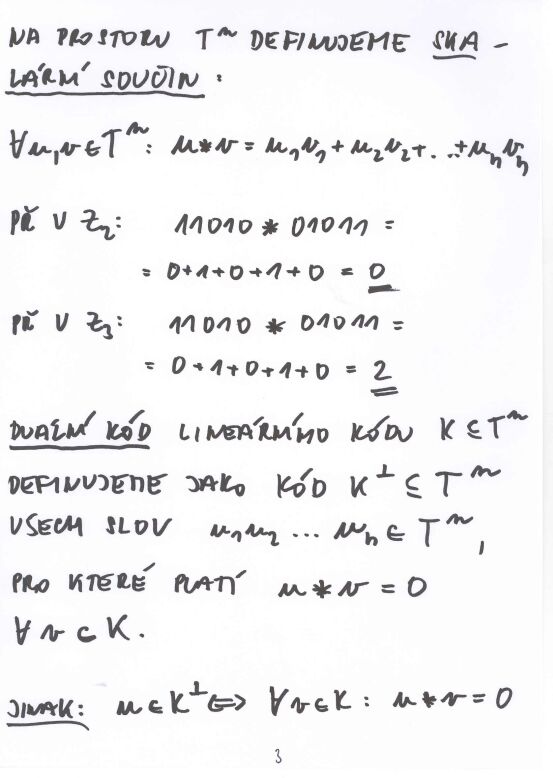 NA PROSTORU Tⁿ DEFINUJEME SKA-
LÁRNÍ SOUČIN:
∀u,v∈Tⁿ: u*v = u₁v₁ + u₂v₂ + ... + uₙvₙ
PŘ V Z₂: 11010 * 01011 =
= 0+1+0+1+0 = 0
PŘ V Z₃: 11010 * 01011 =
= 0+1+0+1+0 = 2
DUÁLNÍ KÓD LINEÁRNÍHO KÓDU K ⊆ Tⁿ
DEFINUJEME JAKO KÓD K⊥ ⊆ Tⁿ
VŠECH SLOV u₁u₂ ... uₙ ∈ Tⁿ,
PRO KTERÉ PLATÍ u * v = 0
∀ v ⊂ K.
JINAK: u ∈ K⊥ ⇔ ∀v∈K : u*v = 0
3